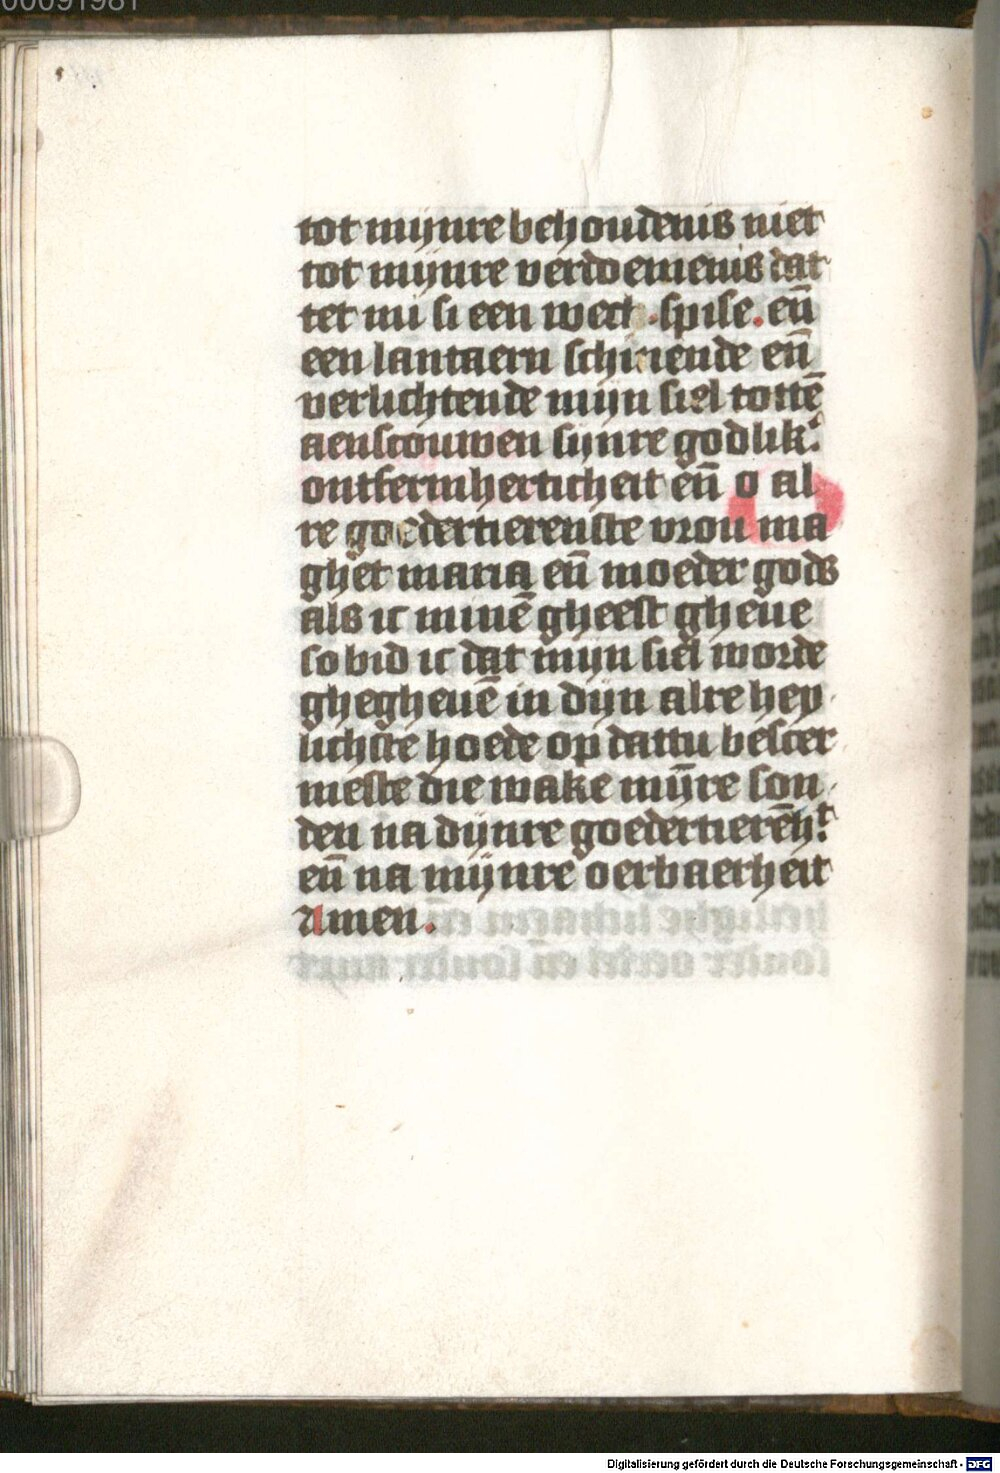 00091981
tot mijnre behoudenis niet
tot mijnre verdoemenis dat
tet mi si een wech . spise . eñ
een lantaern schinende eñ
verlichtende mijn siel tottē
aenscouwen sijnre godlik.
ontfermherticheit eñ o al
re goedertierenste vrou ma
ghet maria eñ moeder gods
als ic minē gheest gheue
so bid ic dat mijn siel worde
ghegheuē in dijn alre hey
lichste hoede op dattu bescer
meste die wake mijre son
den na dijnre goedertierēht
eñ na mijnre oerbaerheit
Amen .
Digitalisierung gefördert durch die Deutsche Forschungsgemeinschaft - DFG